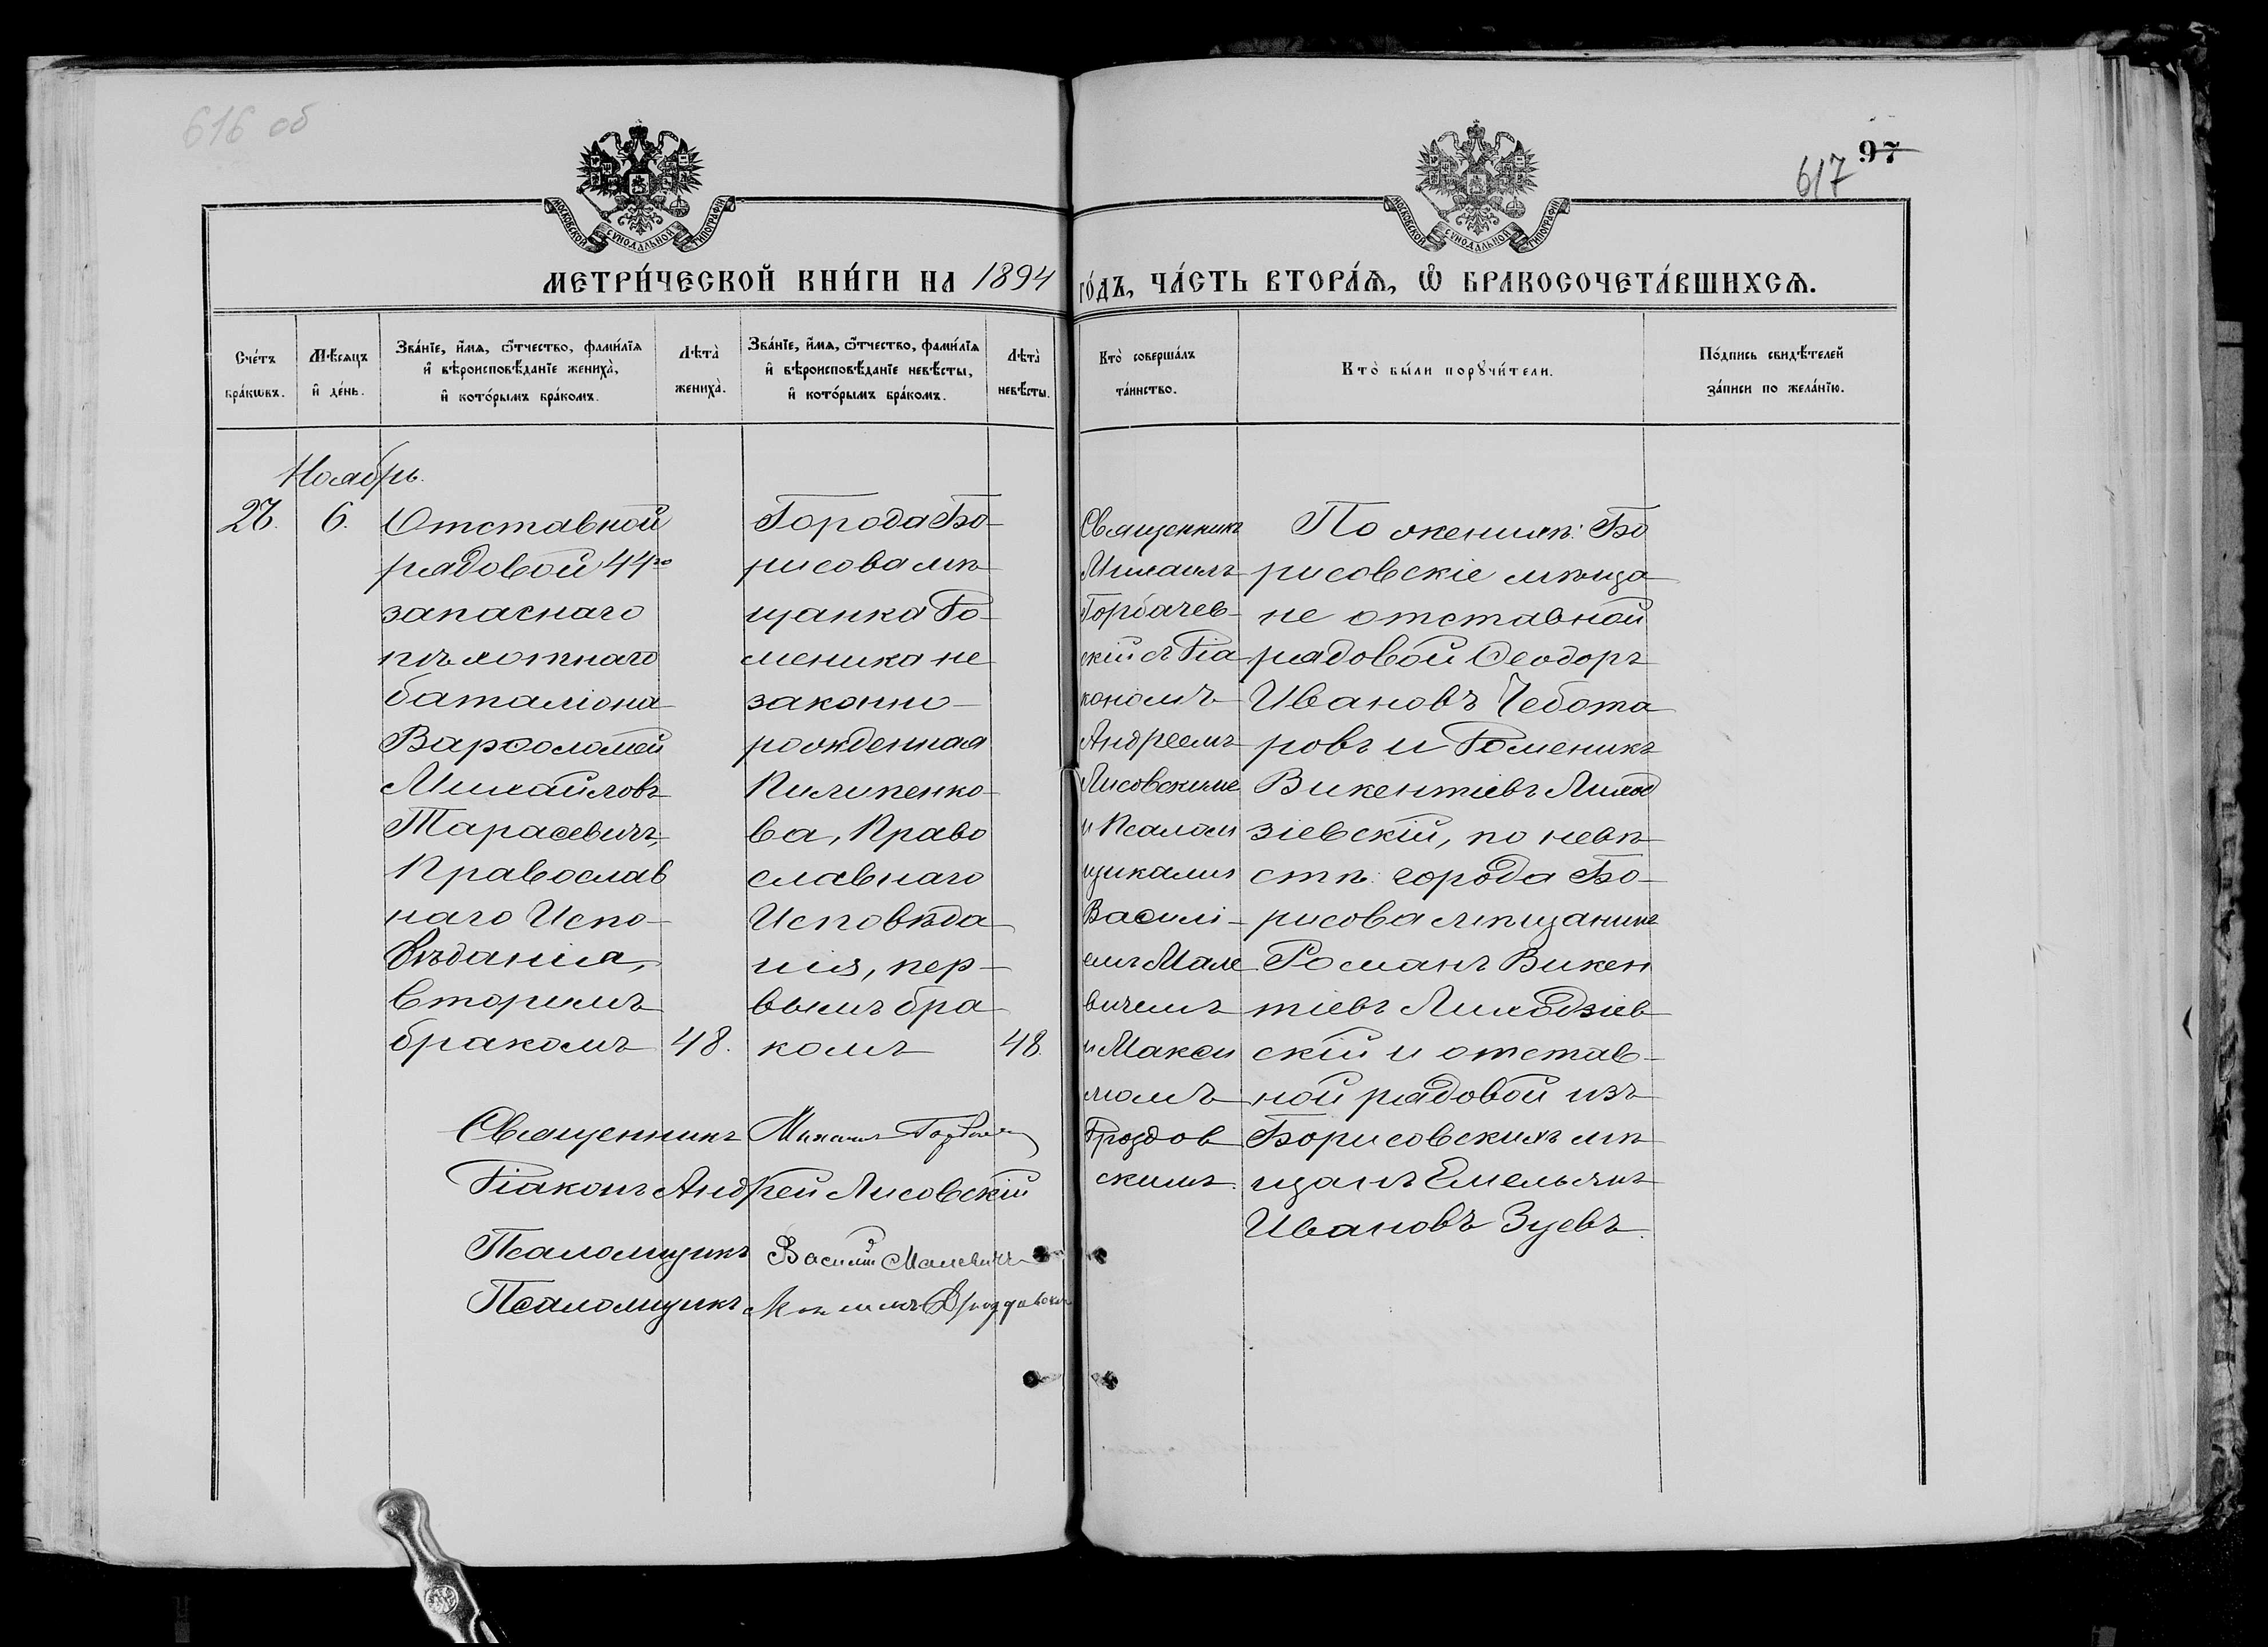 616 об
97
617
МОСКОВСКОЙ СѴНОДАЛЬНОЙ ТИПОГРАФІИ
МОСКОВСКОЙ СѴНОДАЛЬНОЙ ТИПОГРАФІИ
МЕТРИ́ЧЕСКОЙ КНИ́ГИ НА 1894 ГО́ДЪ, ЧА́СТЬ ВТОРА́Ѧ, Ѽ БРАКОСОЧЕТА́ВШИХСѦ.
Сче́тъ
бра́кѡвъ.
Мѣ́сяцъ
и҆ де́нь.
Зва́нїе, и҆́мѧ, ѻ҆́тчество, фами́лїѧ
и҆ вѣроисповѣ́данїе жениха̀,
и҆ кото́рымъ бра́комъ.
Лѣта̀
жениха̀.
Зва́нїе, и҆́мѧ, ѻ҆́тчество, фами́лїѧ
и҆ вѣроисповѣ́данїе невѣ́сты,
и҆ кото́рымъ бра́комъ.
Лѣта̀
невѣ́сты.
Кто̀ соверша́лъ
та́инство.
Кто̀ бы́ли порꙋчи́тели.
По́дпись свидѣ́телей
за́писи по жела́нїю.
Ноябрь.
6.
Отставной
рядовой 44го
запаснаго
пѣхотнаго
баталіона
Варѳоломей
Михайловъ
Тарасевичъ,
Православ
наго Испо-
вѣданія,
вторымъ
бракомъ
48.
Города Бо-
рисова мѣ
щанка До-
меника не
законно-
рожденная
Пилипенко-
ва, Право
славнаго
Исповѣда
нія, пер-
вымъ бра
комъ
48.
Священникъ
Михаилъ
Горбачев-
скій съ Діа
кономъ
Андреемъ
Лисовскимъ
и Псалом
щиками
Василі-
емъ Мале
вичемъ
и Макси
момъ
Дроздов
скимъ.
По женихѣ: Бо
рисовскіе мѣща
не отставной
рядовой Ѳеодоръ
Ивановъ Чебота
ровъ и Доменикъ
Викентіевъ Лиход
зіевскій, по невѣ
стѣ: города Бо-
рисова мѣщанинъ
Романъ Викен
тіевъ Лиходзіев
скій и отстав-
ной рядовой изъ
Борисовскихъ мѣ
щанъ Емельянъ
Ивановъ Зуевъ.
Священникъ Михаилъ
Діаконъ Андрей Лисовскій
Псаломщикъ Василій Малевичъ
Псаломщикъ Максимъ Дроздовскій